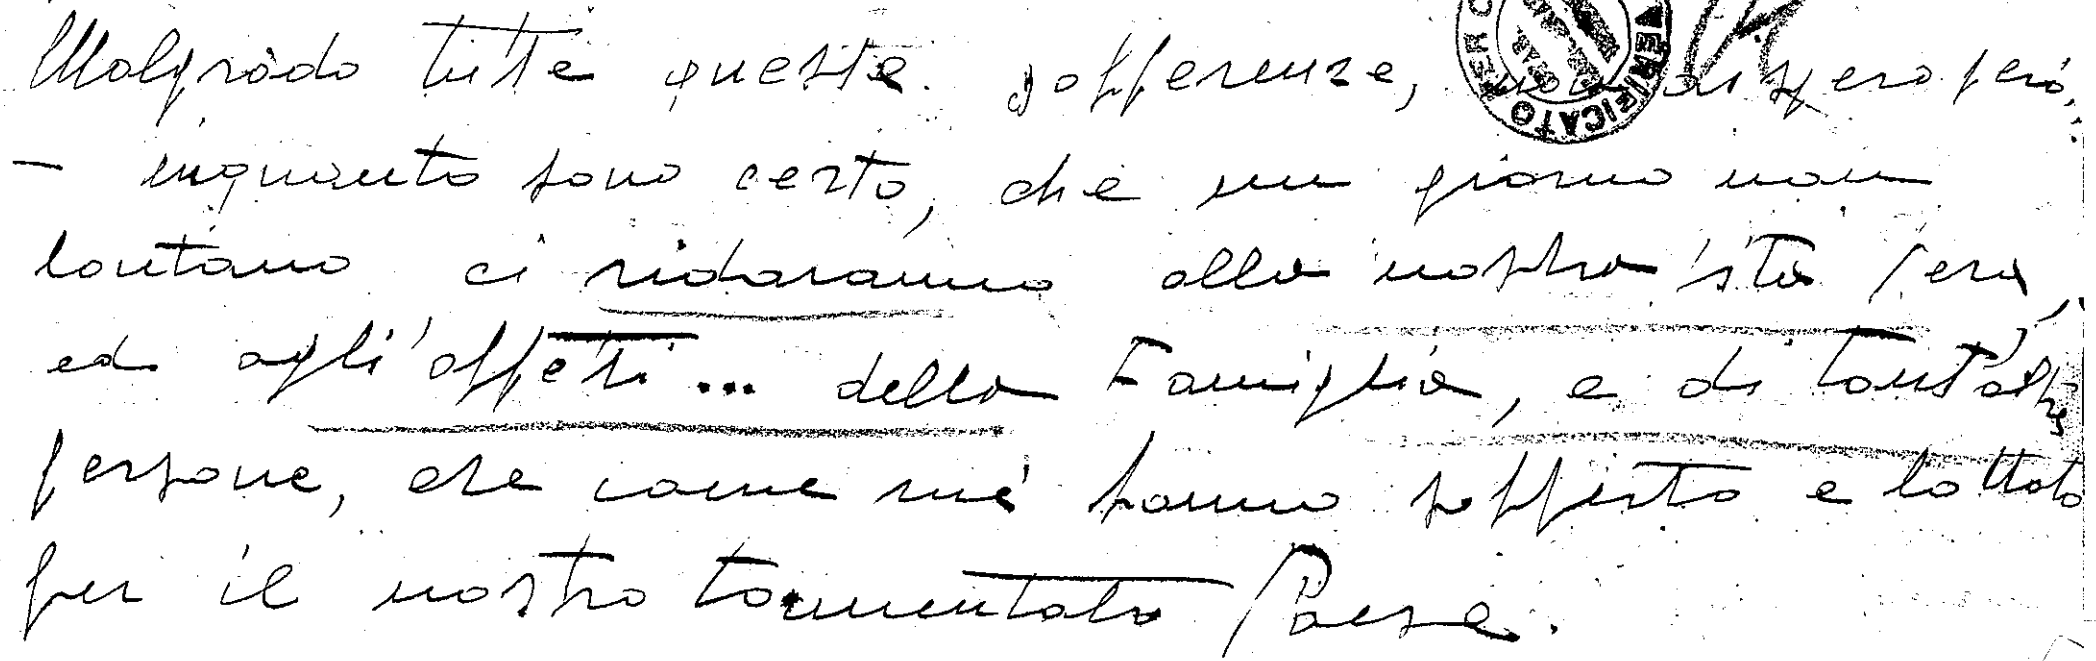 Malgrado tutte queste sofferenze, non dispero però,
- inquanto sono certo, che un giorno non
lontano ci ridaranno alla nostra vita vera,
ed agli'affetti... della Famiglia, e di tant'altre
persone, che come mé hanno sofferto e lottato
per il nostro tormentato Paese.
VERIFICATO PER C